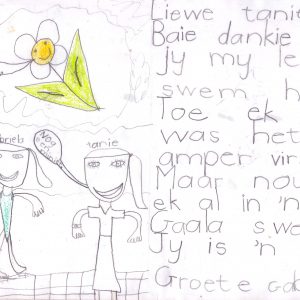 tanie
Liewe tanie
Baie dankie
jy my le
swem h
Toe ek
was het
amper vir
Maar nou
ek al in 'n
Gaala swe
Jy is 'n
Groete Gab